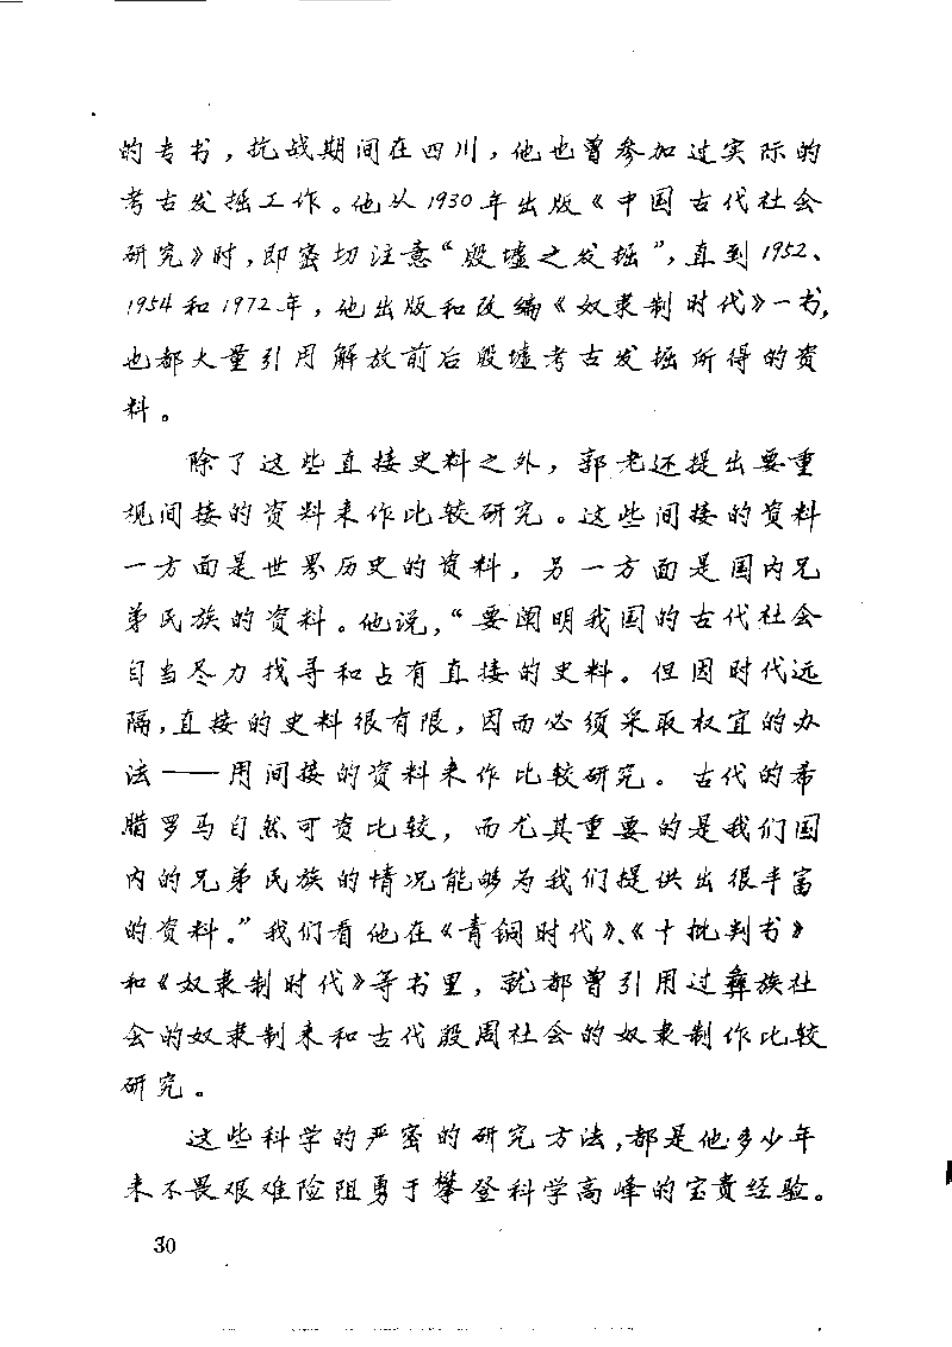 的专书，抗战期间在四川，他也曾参加过实际的
考古发掘工作。他从1930年出版《中国古代社会
研究》时，即密切注意“殷墟之发掘”，直到1952、
1954和1972年，他出版和改编《奴隶制时代》一书，
也都大量引用解放前后殷墟考古发掘所得的资
料。
除了这些直接史料之外，郭老还提出要重
视间接的资料来作比较研究。这些间接的资料
一方面是世界历史的资料，另一方面是国内兄
弟民族的资料。他说，“要阐明我国的古代社会
自当尽力找寻和占有直接的史料。但因时代远
隔，直接的史料很有限，因而必须采取权宜的办
法——用间接的资料来作比较研究。古代的希
腊罗马自然可资比较，而尤其重要的是我们国
内的兄弟民族的情况能够为我们提供出很丰富
的资料。”我们看他在《青铜时代》、《十批判书》
和《奴隶制时代》等书里，就都曾引用过彝族社
会的奴隶制来和古代殷周社会的奴隶制作比较
研究。
这些科学的严密的研究方法，都是他多少年
来不畏艰难险阻勇于攀登科学高峰的宝贵经验。
30